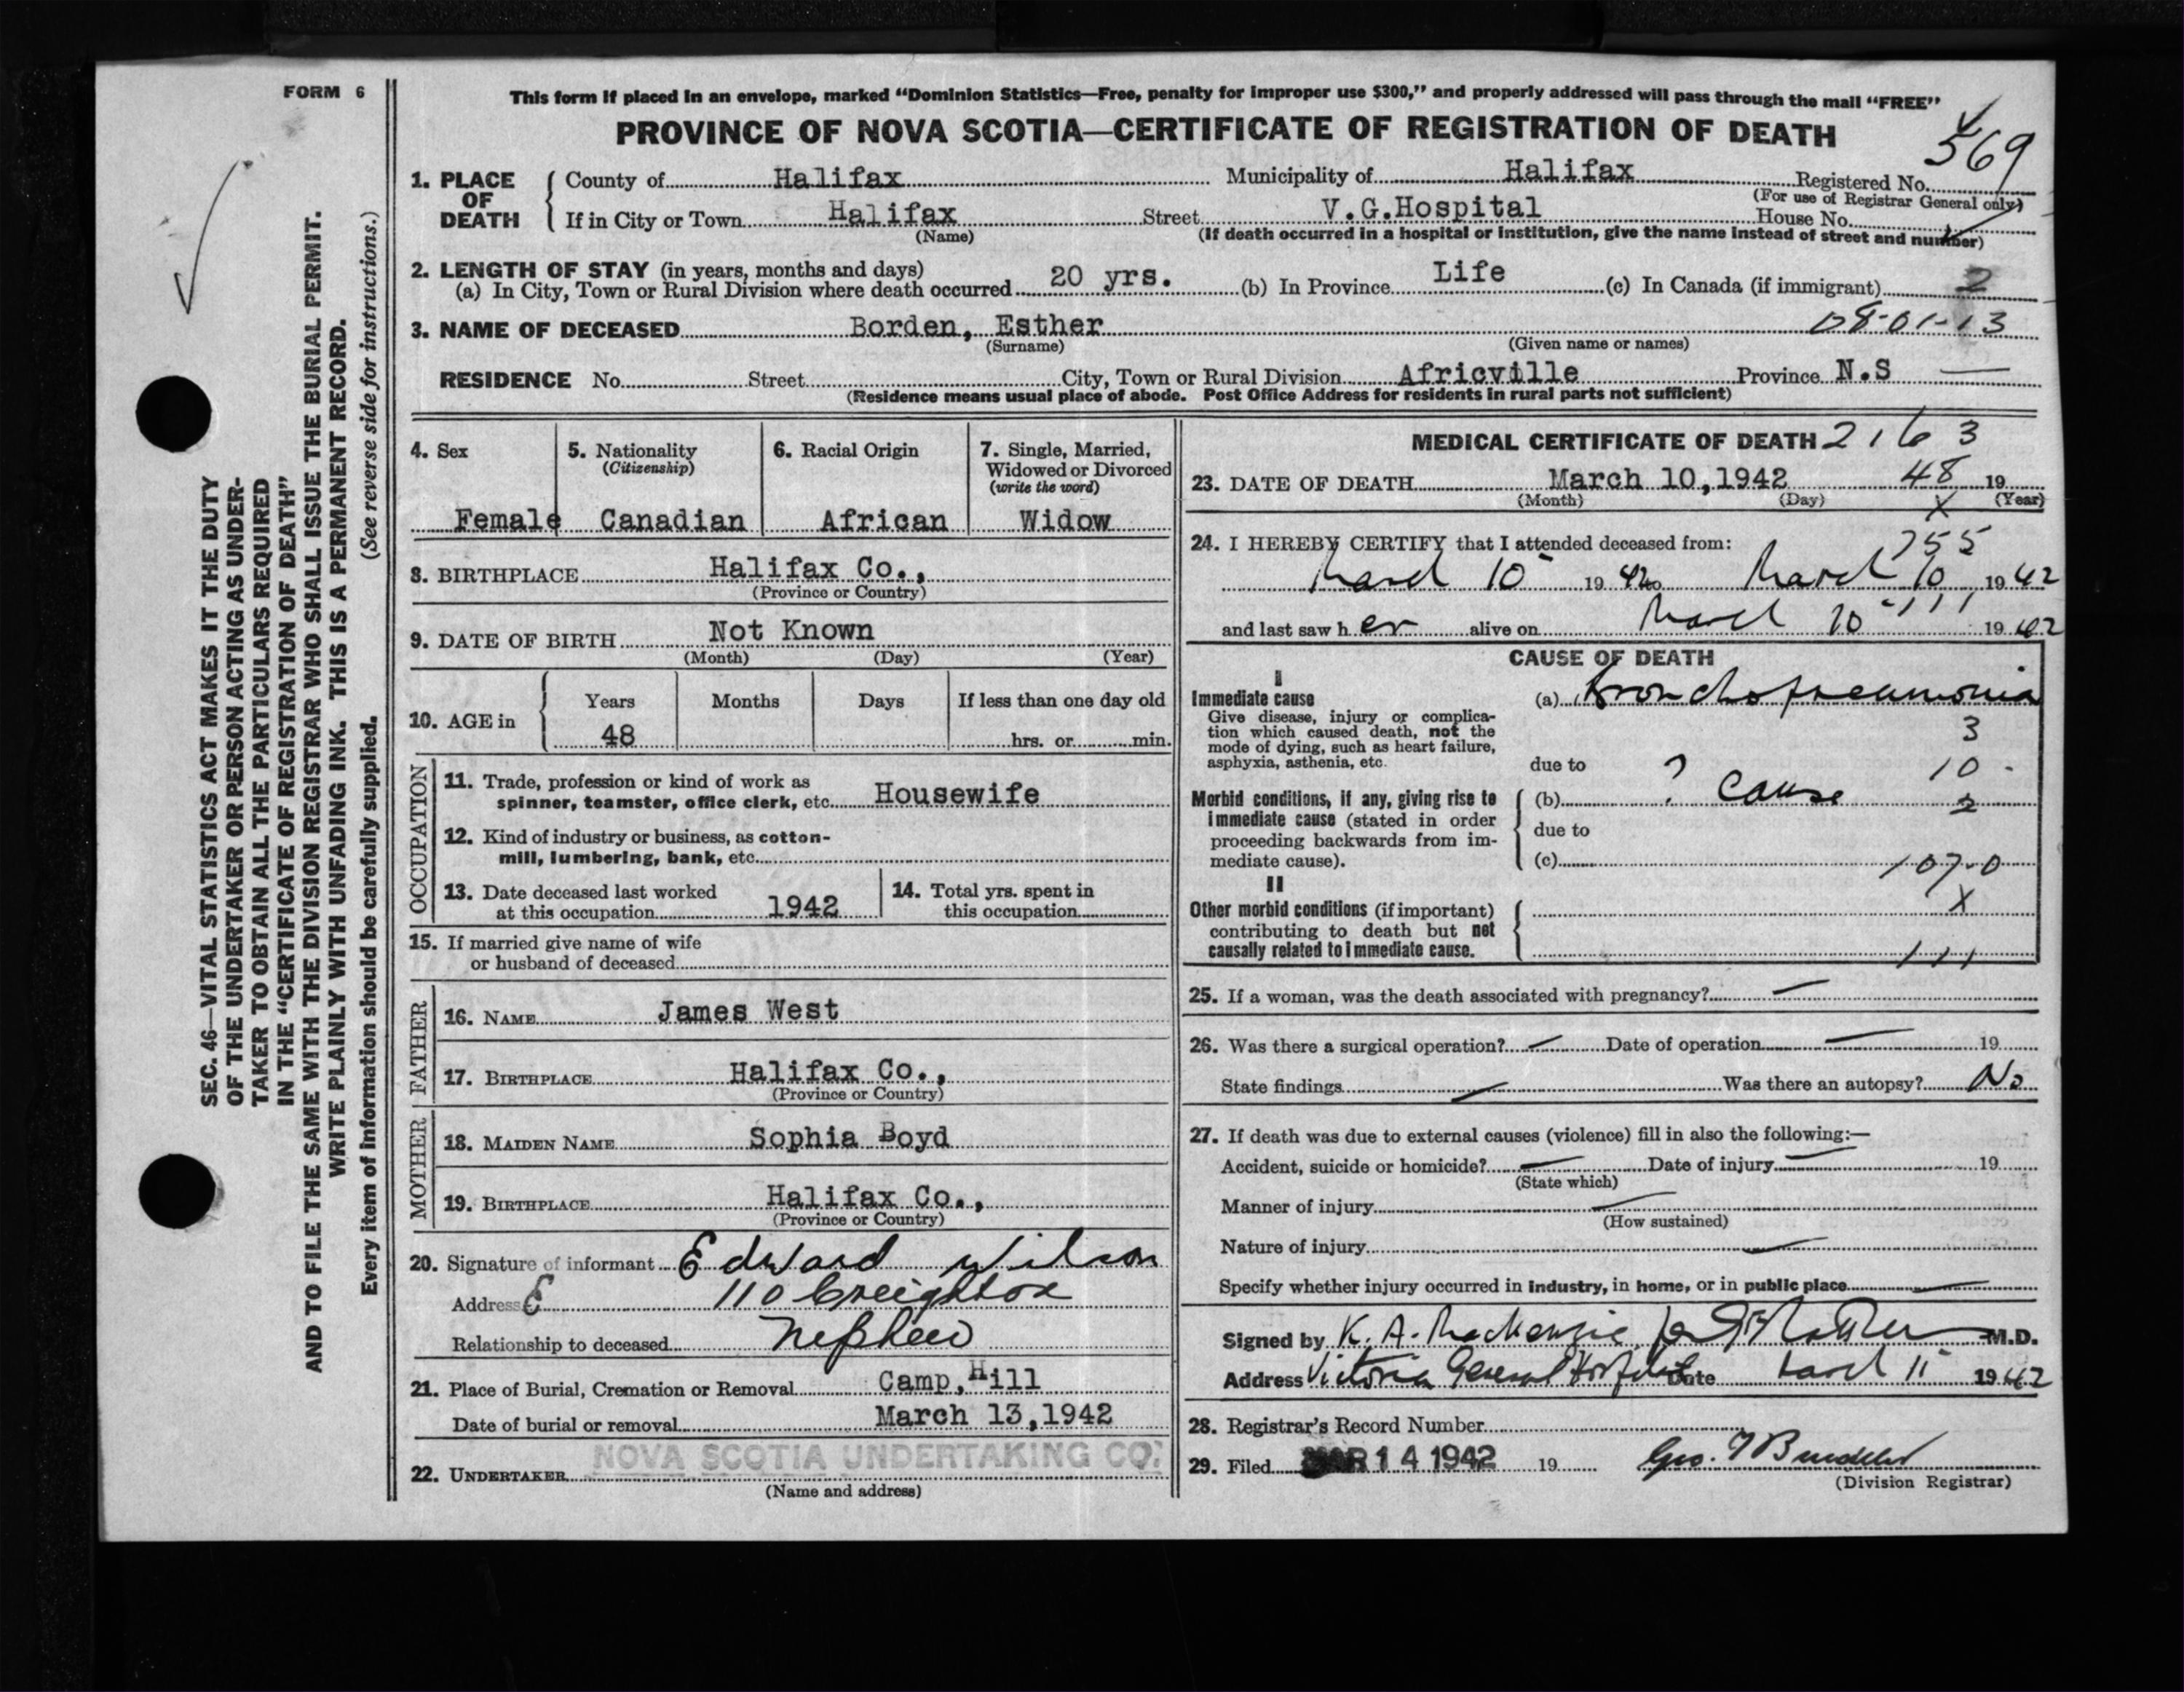 FORM 6
This form if placed in an envelope, marked “Dominion Statistics—Free, penalty for improper use $300,” and properly addressed will pass through the mail “FREE”
PROVINCE OF NOVA SCOTIA—CERTIFICATE OF REGISTRATION OF DEATH
569
1. PLACE OF DEATH
County of Halifax Municipality of Halifax Registered No.
(For use of Registrar General only)
If in City or Town Halifax Street V.G.Hospital House No.
(Name) (If death occurred in a hospital or institution, give the name instead of street and number)
2. LENGTH OF STAY (in years, months and days)
(a) In City, Town or Rural Division where death occurred 20 yrs. (b) In Province Life (c) In Canada (if immigrant) 2
3. NAME OF DECEASED Borden, Esther 08-01-13
(Surname) (Given name or names)
RESIDENCE No. Street City, Town or Rural Division Africville Province N.S —
(Residence means usual place of abode. Post Office Address for residents in rural parts not sufficient)
4. Sex
Female
5. Nationality
(Citizenship)
Canadian
6. Racial Origin
African
7. Single, Married,
Widowed or Divorced
(write the word)
Widow
8. BIRTHPLACE Halifax Co.,
(Province or Country)
9. DATE OF BIRTH Not Known
(Month) (Day) (Year)
10. AGE in
Years Months Days If less than one day old
48 hrs. or min.
OCCUPATION
11. Trade, profession or kind of work as
spinner, teamster, office clerk, etc. Housewife
12. Kind of industry or business, as cotton-
mill, lumbering, bank, etc.
13. Date deceased last worked
at this occupation 1942
14. Total yrs. spent in
this occupation
15. If married give name of wife
or husband of deceased
FATHER
16. NAME James West
17. BIRTHPLACE Halifax Co.,
(Province or Country)
MOTHER
18. MAIDEN NAME Sophia Boyd
19. BIRTHPLACE Halifax Co.,
(Province or Country)
20. Signature of informant Edward Wilson
Address 110 Creighton
Relationship to deceased Nephew
21. Place of Burial, Cremation or Removal Camp,Hill
Date of burial or removal March 13,1942
NOVA SCOTIA UNDERTAKING CO.
22. UNDERTAKER
(Name and address)
MEDICAL CERTIFICATE OF DEATH 2163
23. DATE OF DEATH March 10,1942 48 19
(Month) (Day) X (Year)
24. I HEREBY CERTIFY that I attended deceased from:
755
March 10 1942 to March 10 1942
111
and last saw h er alive on March 10 1942
CAUSE OF DEATH
I
Immediate cause (a) Bronchopneumonia
Give disease, injury or complica-
tion which caused death, not the
mode of dying, such as heart failure,
asphyxia, asthenia, etc.
3
due to 10
Morbid conditions, if any, giving rise to
immediate cause (stated in order
proceeding backwards from im-
mediate cause).
(b) ? cause 2
due to
(c) 107-0
II
X
Other morbid conditions (if important)
contributing to death but not
causally related to immediate cause.
111
25. If a woman, was the death associated with pregnancy? —
26. Was there a surgical operation? — Date of operation — 19
State findings — Was there an autopsy? No
27. If death was due to external causes (violence) fill in also the following:—
Accident, suicide or homicide? — Date of injury — 19
(State which)
Manner of injury —
(How sustained)
Nature of injury —
Specify whether injury occurred in industry, in home, or in public place —
Signed by K. A. MacKenzie M.D.
Address Victoria General Hospital Date March 11 1942
28. Registrar's Record Number
29. Filed MAR 14 1942 19 Geo.
(Division Registrar)
SEC. 46—VITAL STATISTICS ACT MAKES IT THE DUTY
OF THE UNDERTAKER OR PERSON ACTING AS UNDER-
TAKER TO OBTAIN ALL THE PARTICULARS REQUIRED
IN THE “CERTIFICATE OF REGISTRATION OF DEATH”
AND TO FILE THE SAME WITH THE DIVISION REGISTRAR WHO SHALL ISSUE THE BURIAL PERMIT.
WRITE PLAINLY WITH UNFADING INK. THIS IS A PERMANENT RECORD.
Every item of information should be carefully supplied. (See reverse side for instructions.)